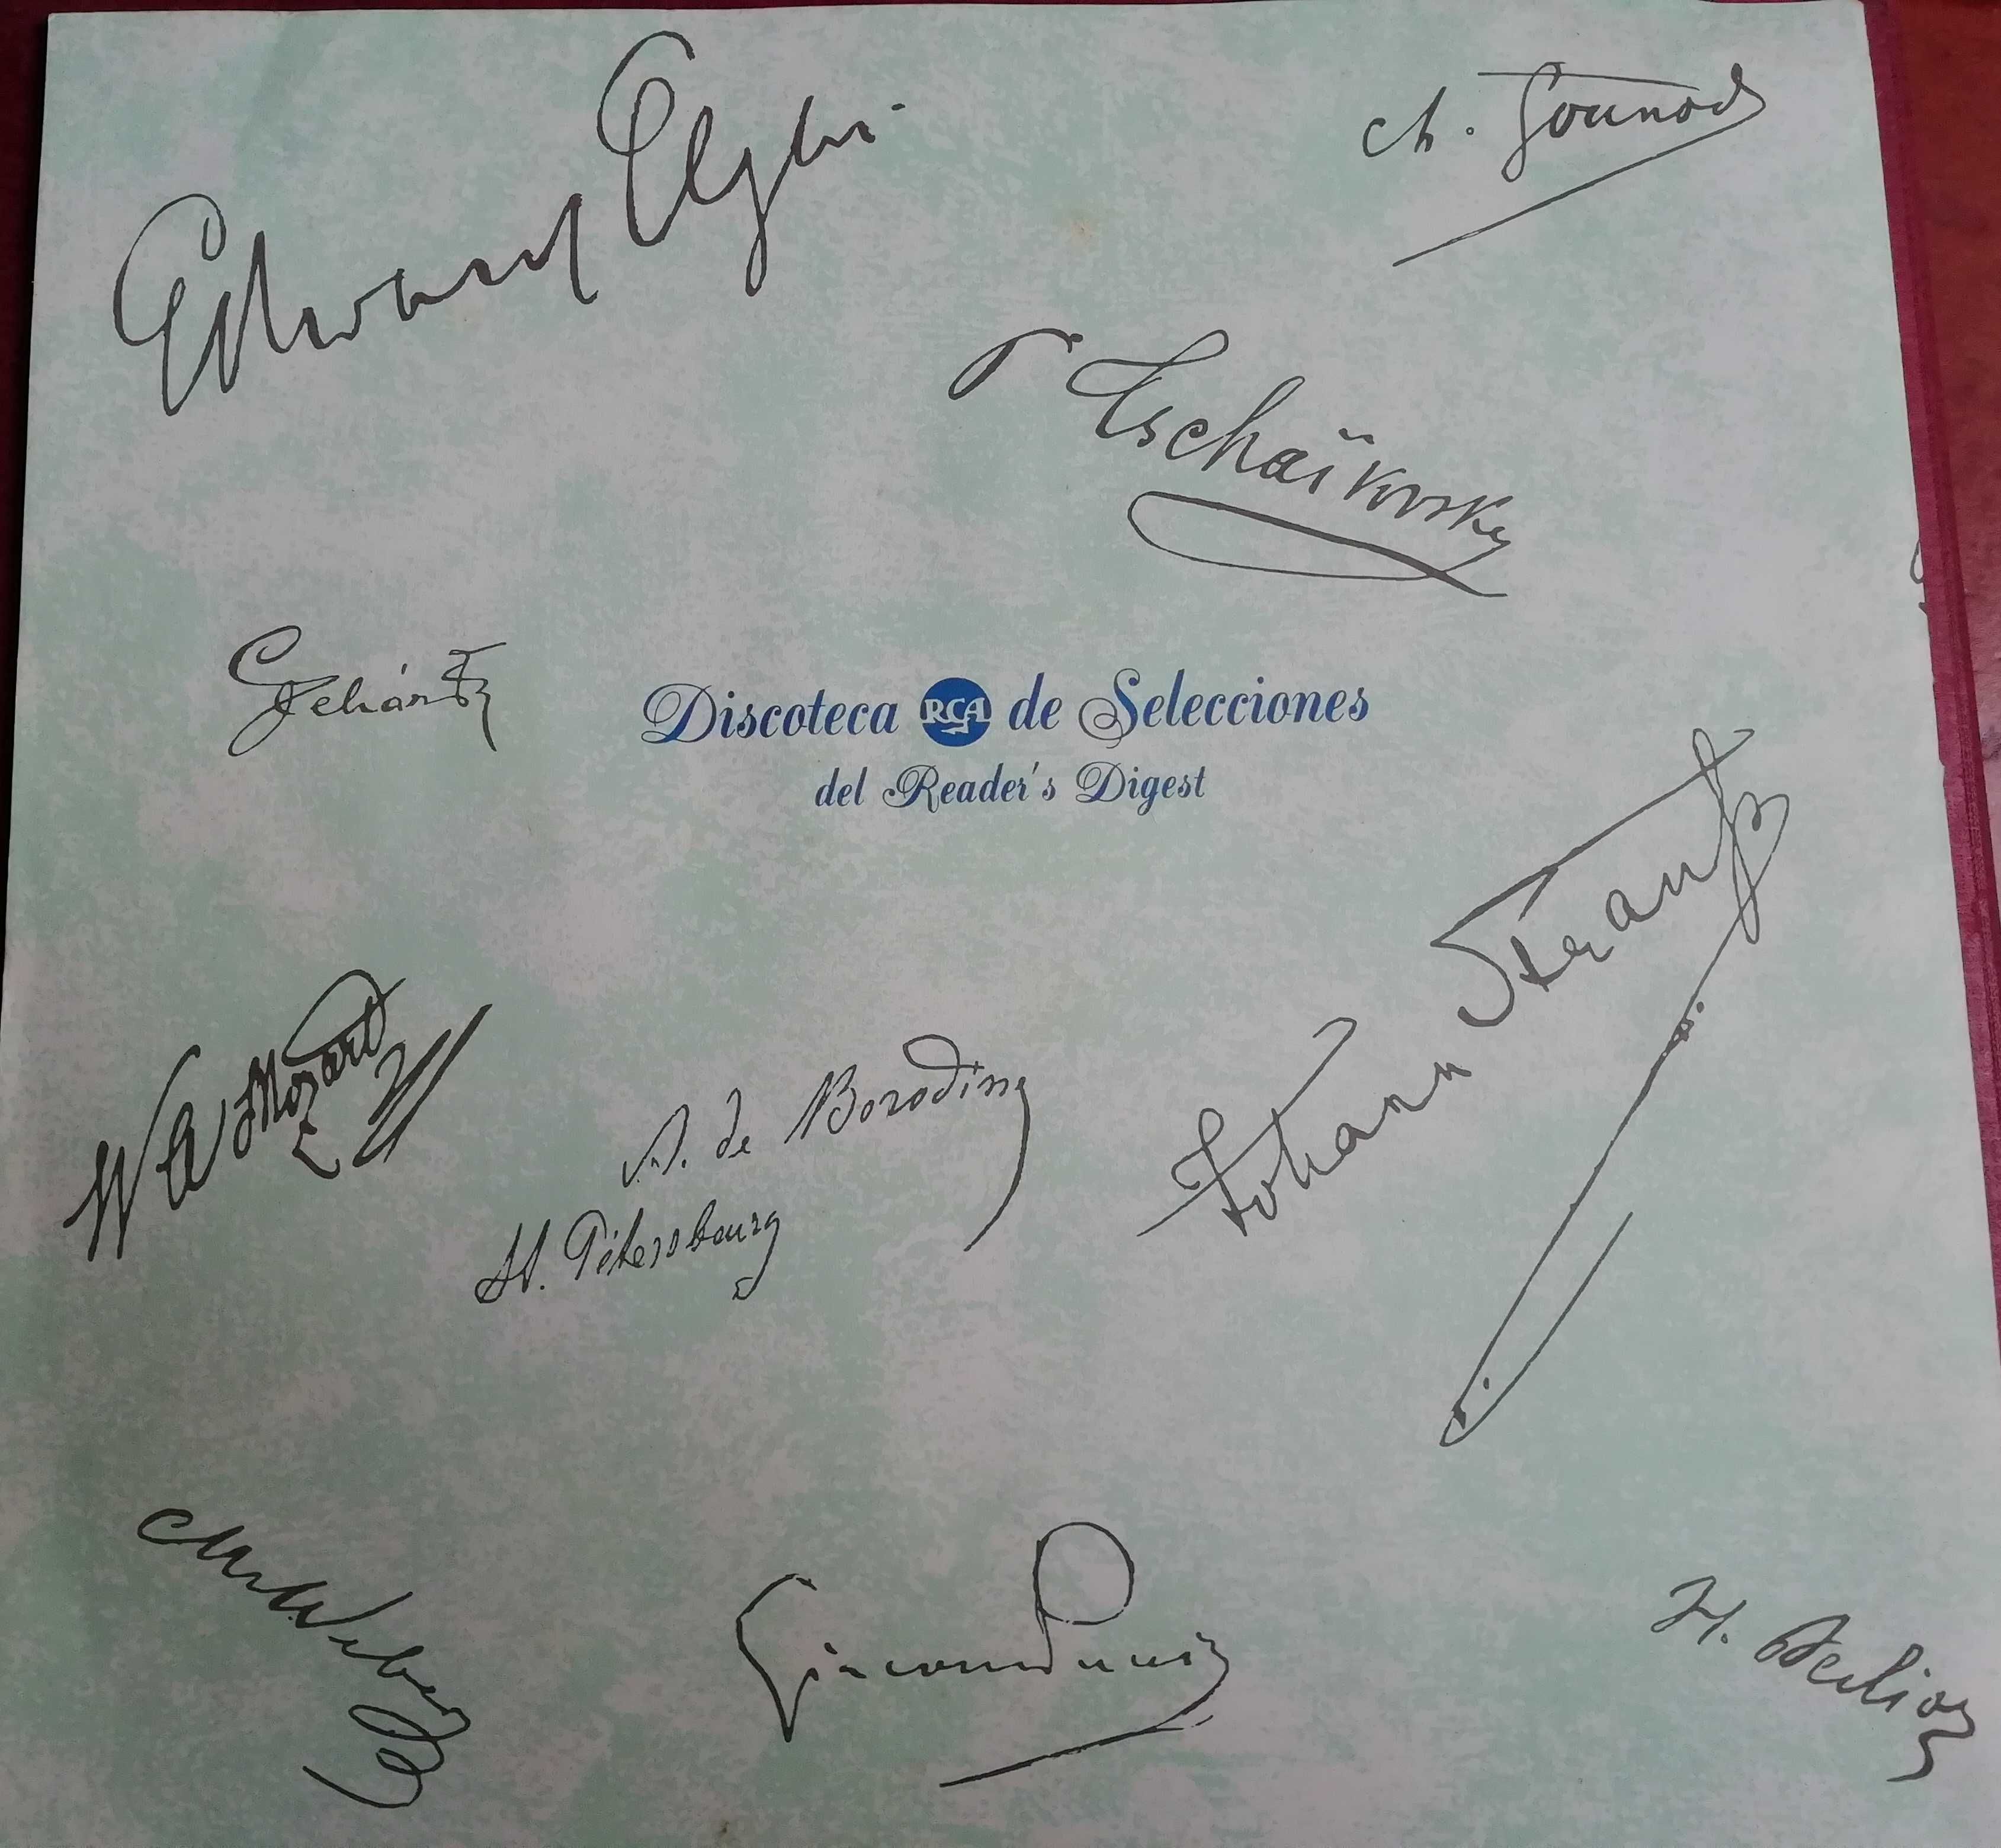 Edward Elgar
Ch. Gounod
P. Tschaïkovsky
Lehár Fz
Discoteca RCA de Selecciones
del Reader's Digest
Johann Strauß
W A Mozart
A. de Borodine
St. Pétersbourg
CMvWeber
Giacomo Puccini
H. Berlioz